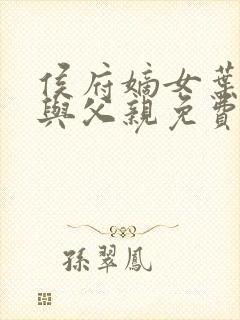 侯府嫡女葉
與父親免費
孫翠鳳